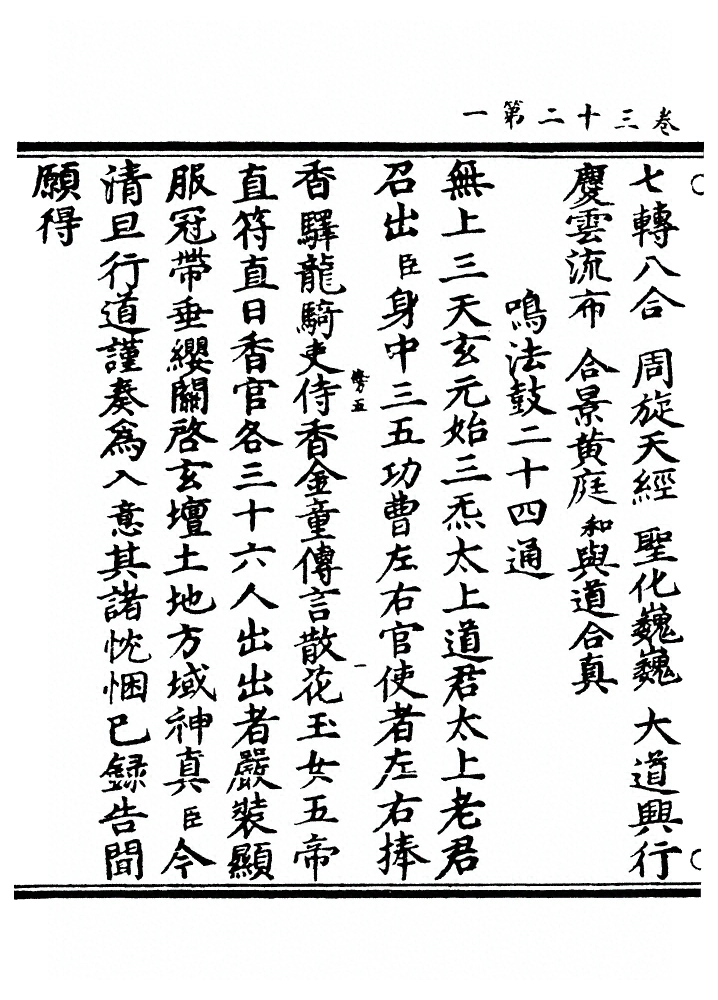 卷三十二第一
七轉八合　周旋天經　聖化巍巍　大道興行
慶雲流布　合景黄庭　和與道合真
鳴法鼓二十四通
無上三天玄元始三炁太上道君太上老君
召出臣身中三五功曹左右官使者左右捧
香驛龍騎吏侍香金童傳言散花玉女五帝
直符直日香官各三十六人出出者嚴裝顯
服冠帶垂纓關啓玄壇土地方域神真臣今
清旦行道謹奏爲入意其諸忱悃已録告聞
願得